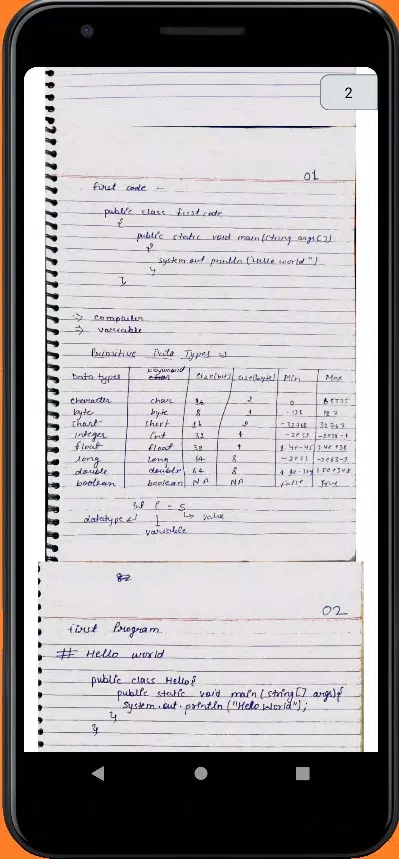 2
01
first code -
public class first code
{
public static void main(string args[])
{
system out println ("Hello world")
}
}
-> compailer
-> variable
Primitive Data Types
Data types keyword size(bit) size(byte) Min Max
character char 2 0 65535
byte byte 8 1 -128 127
short short 16 2 -32768 32767
integer int 32 4
float float 4
long long 64 8 -2e63
double double 64 8
boolean boolean NA NA false true
int i = 5
datatype value
variable
02
first Program
# Hello world
public class Hello{
public static void main (string[] args){
System.out.println ("Hello World");
}
}